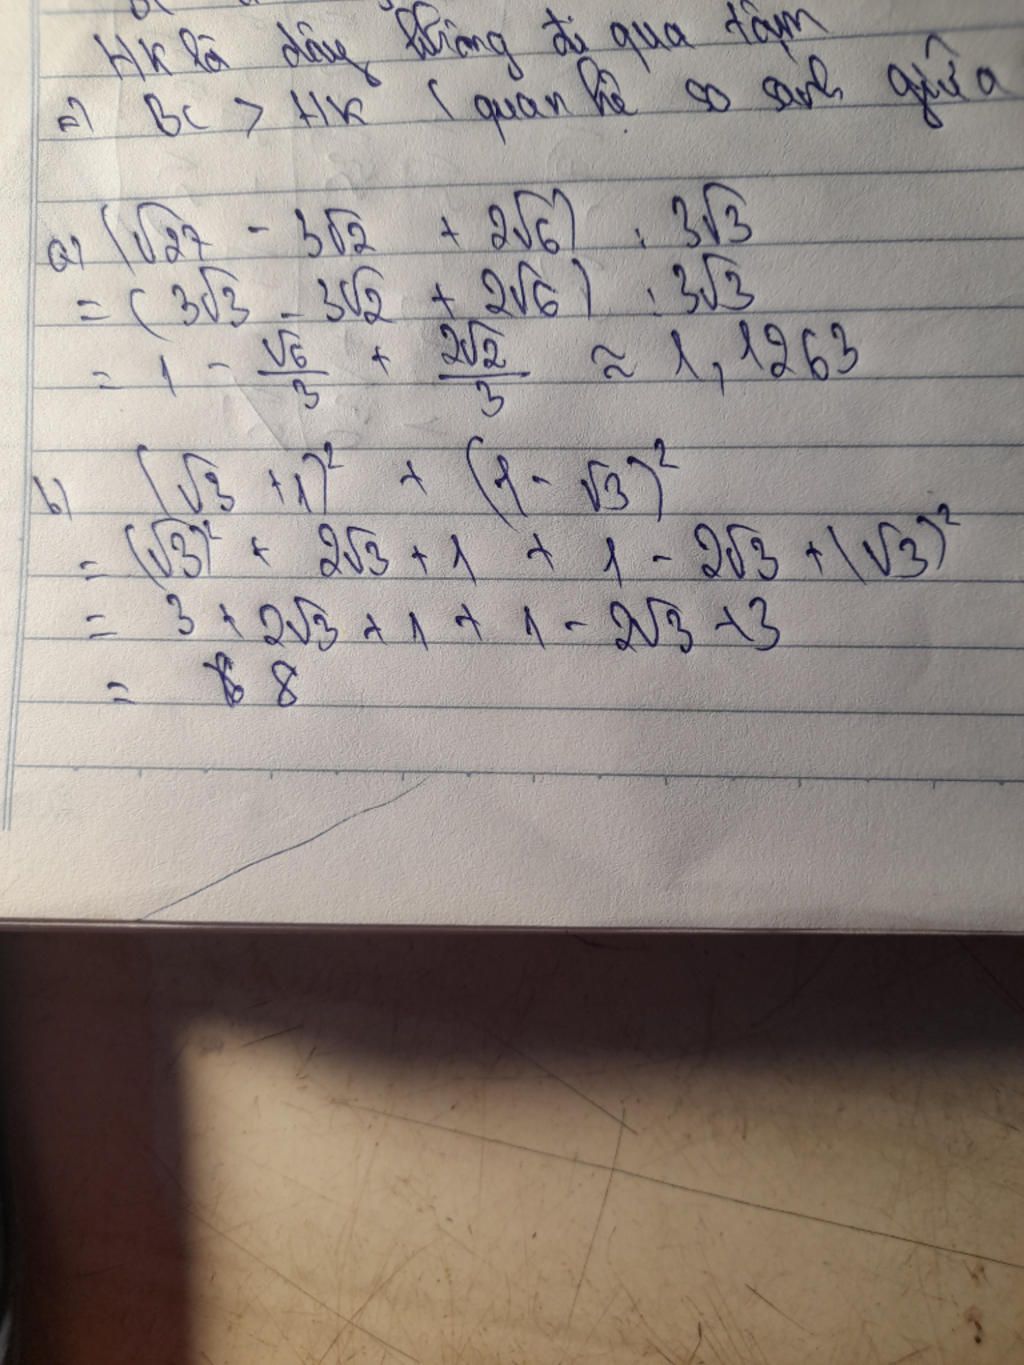 HK là dây không đi qua tâm
=> BC > HK ( quan hệ so sánh giữa
a) (√27 - 3√2 + 2√6) : 3√3
= (3√3 - 3√2 + 2√6) : 3√3
= 1 - √6/3 + 2√2/3 ≈ 1,1263
b) (√3 + 1)² + (1 - √3)²
= (√3)² + 2√3 + 1 + 1 - 2√3 + (√3)²
= 3 + 2√3 + 1 + 1 - 2√3 + 3
= 8